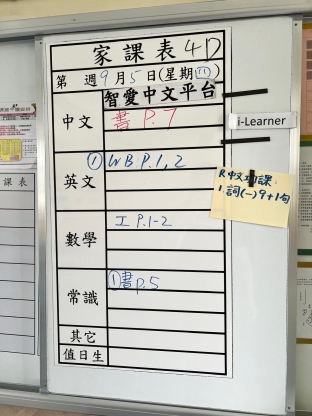 家課表 4D
第 週 9月5日(星期四)
智愛中文平台
中文
書 P.7
i-Learner
英文
① WB P.1,2
R 中文功課
1. 詞(一) 9+1句
數學
工 P.1-2
常識
① 書 P.5
其它
值日生
課表